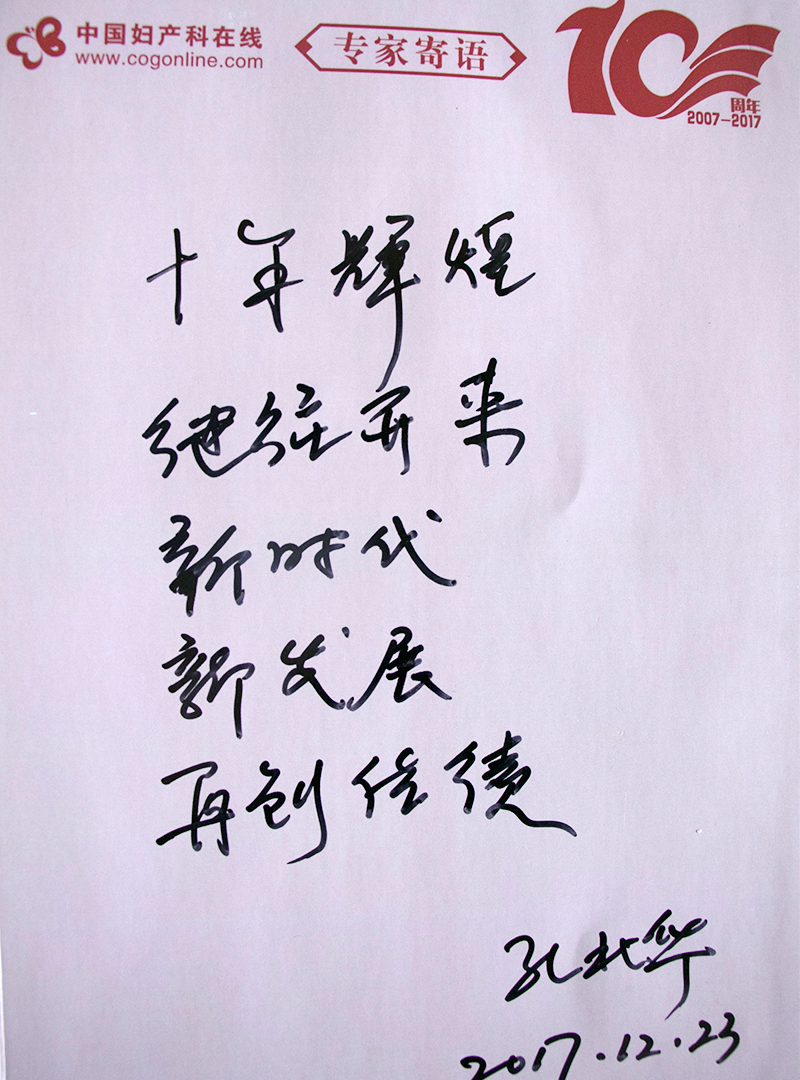 中国妇产科在线
www.cogonline.com
专家寄语
10
周年
2007-2017
十年辉煌
继往开来
新时代
新发展
再创佳绩
孔北华
2017.12.23